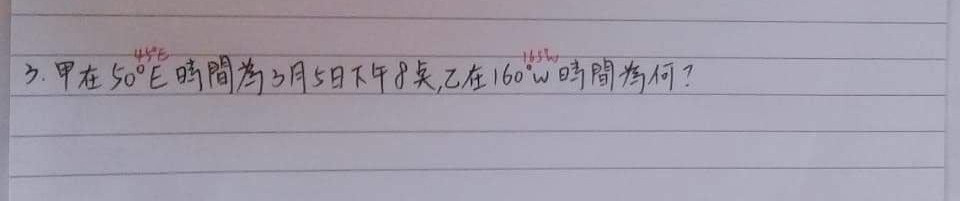 45°E 165°W
3. 甲在50°E時間為3月5日下午8点,乙在160°W時間為何?